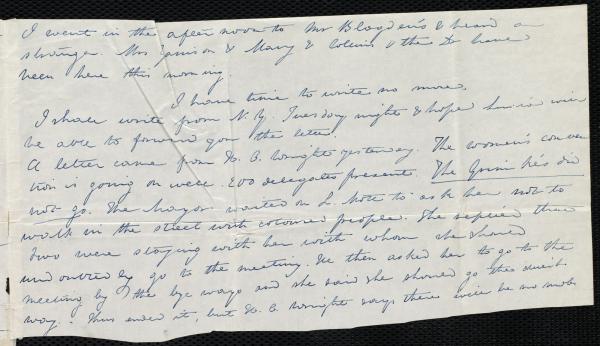 I went in the afternoon to Mr Blagden's & heard a
stranger. Mrs Garrison & Mary & Collins & the Dr have
been here this morning.
I have time to write no more.
I shall write from N.Y. Tuesday night & hope Louisa will
be able to forward you the letter.
A letter came from H. C. Wright yesterday. The women's conven
tion is going on well. 200 delegates present. The Grimkés did
not go. The Mayor waited on L. Mott to ask her not to
walk in the street with coloured people. She replied that
two were staying with her with whom she should
undoubtedly go to the meeting. He then asked her to go to the
meeting by the bye ways and she said she should go the
way. Thus ended it, but H. C. Wright says there will be no mob